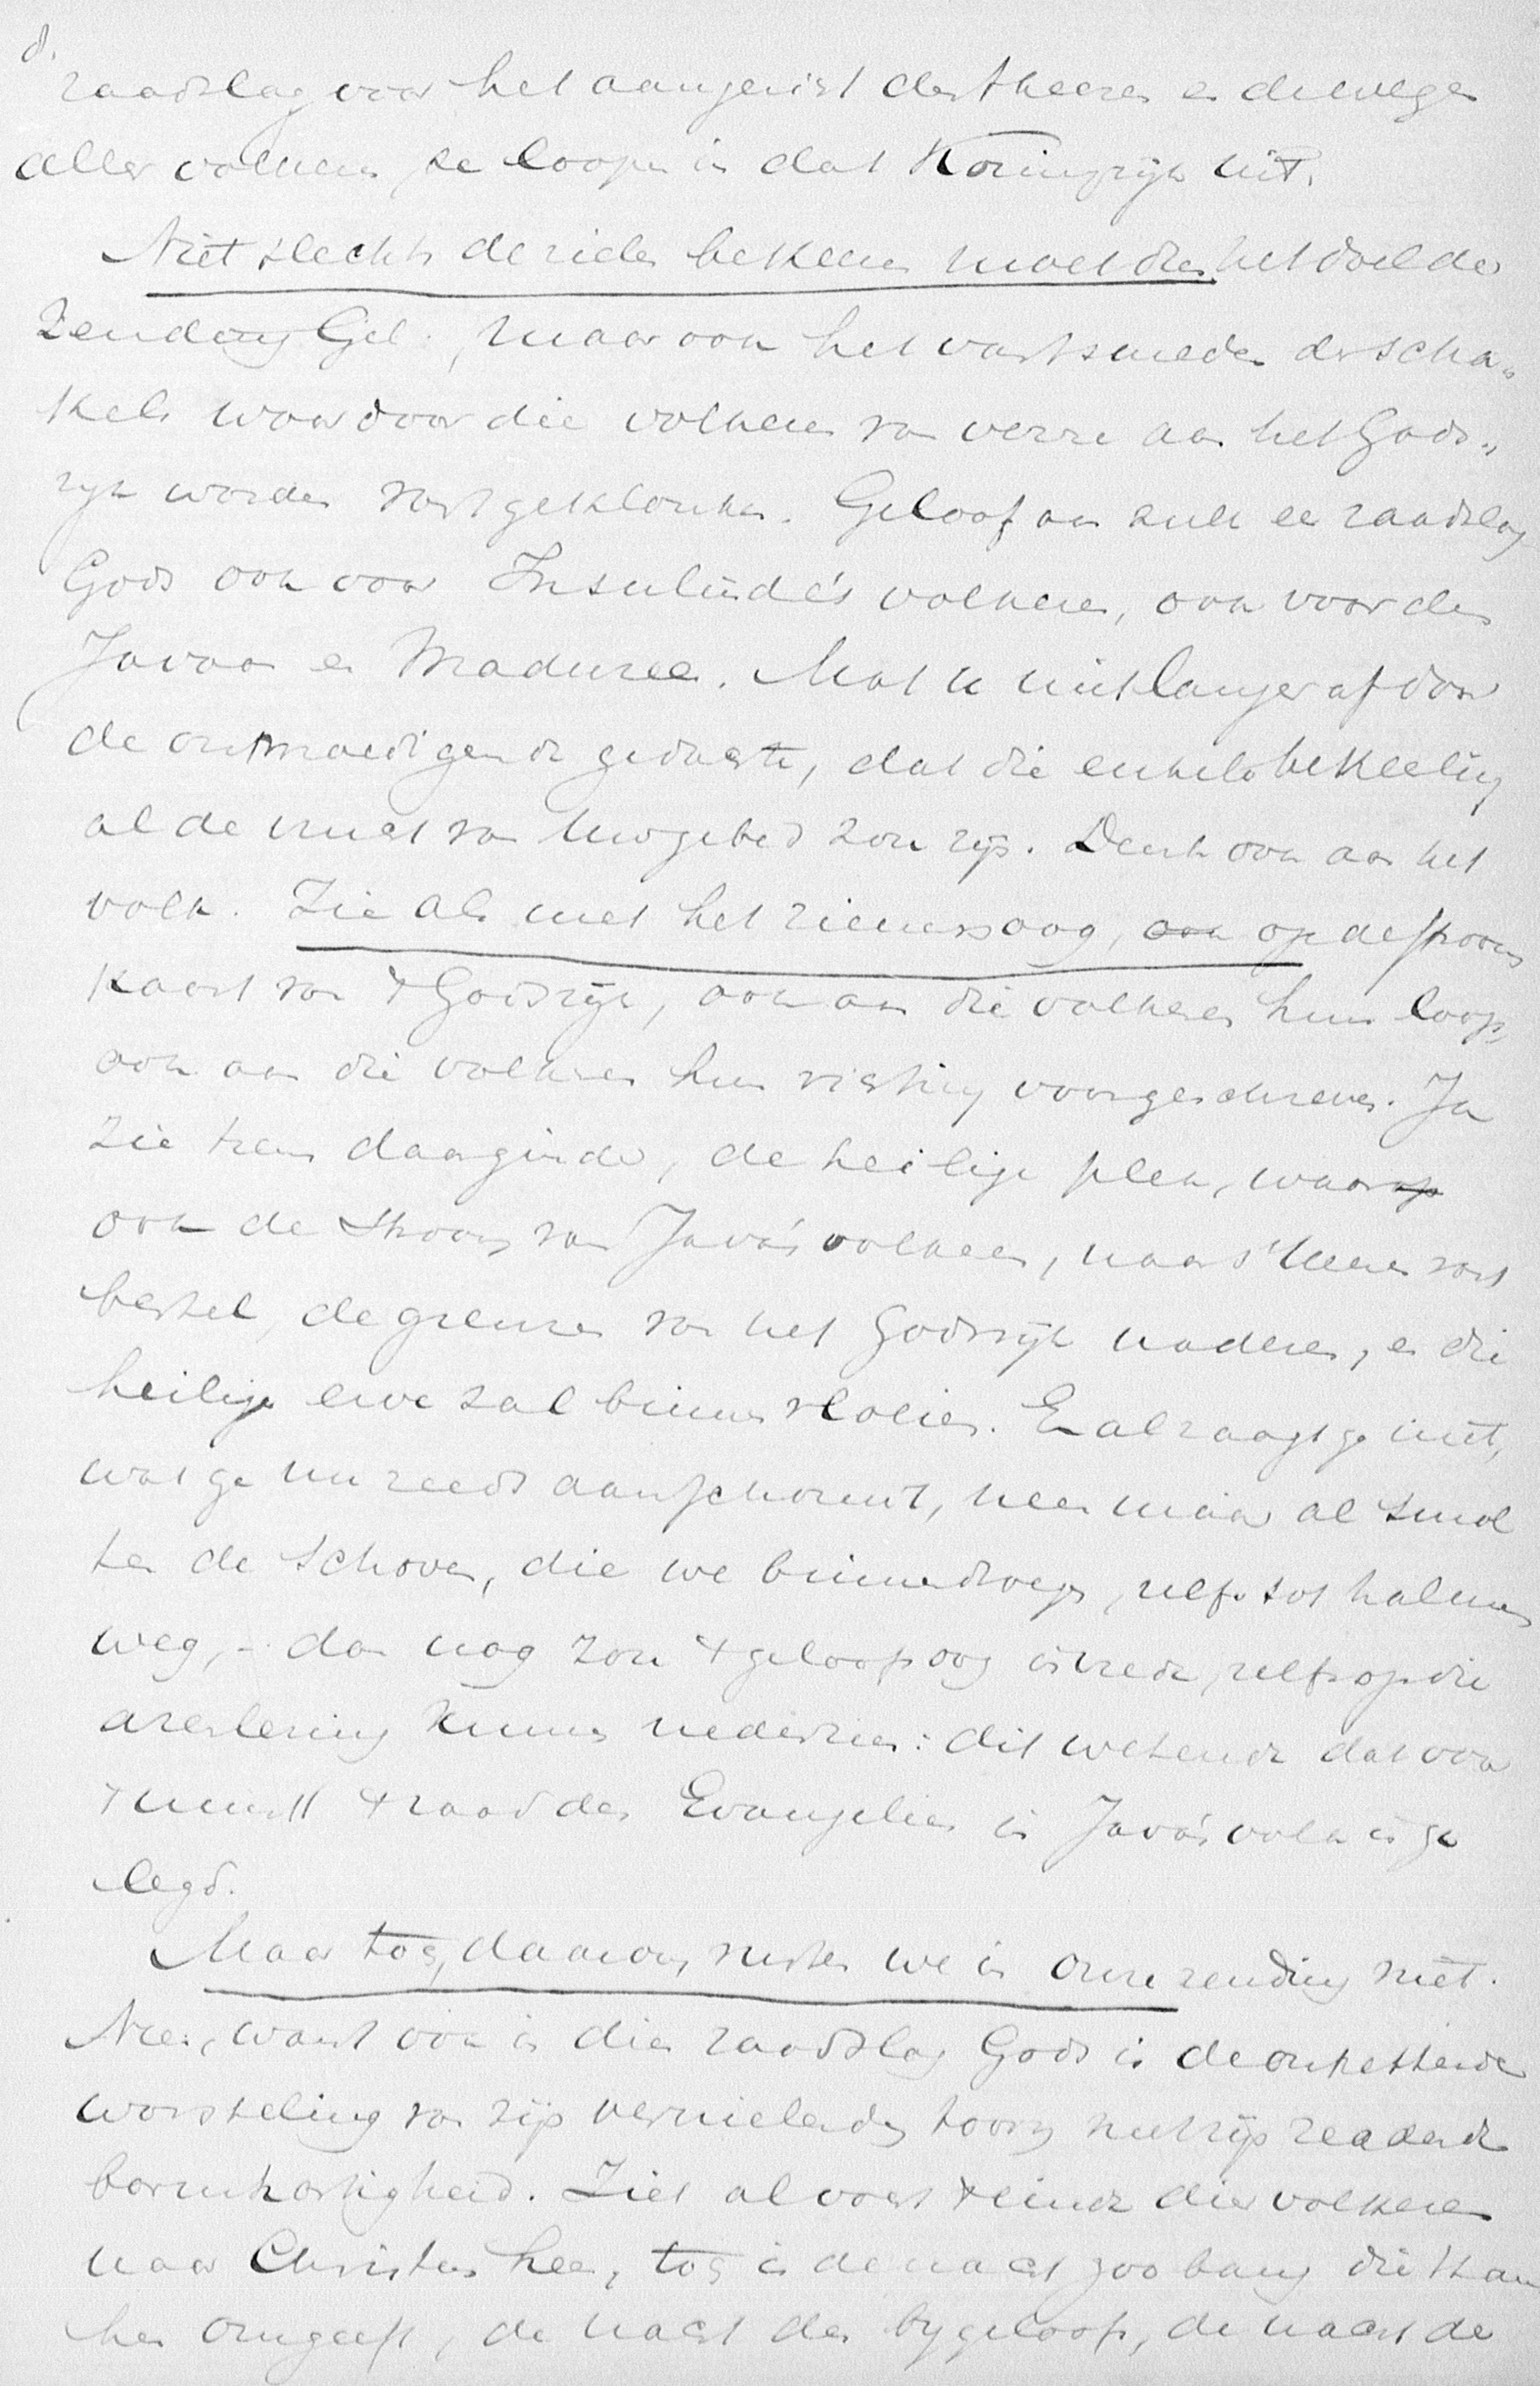 8.
raadslag voor het aangezicht des Heeren en de wegen
aller volken, ze loopen in dat Koninkrijk uit.
Niet slechts de zielen bekeeren moet dus het doel der
Zending Gel., maar ook het vastsmeden der scha„
kels waardoor die volkeren van verre aan het Gods„
rijk worden vastgeklonken. Geloof aan zulk een raadslag
Gods ook voor Insulinde's volkeren, ook voor den
Javaan en Madurees. Mat u niet langer af door
de ontmoedigende gedachte, dat die enkele bekeeling
al de vrucht van Uw gebed zou zijn. Denk ook aan het
volk. Zie als met het zienersoog, ook op de stroom
kaart van 't Godsrijk, ook aan die volkeren hun loop,
ook aan die volkeren hun richting voorgeschreven. Ja
zie heen daarginds, de heilige plek, waarop
ook de stroom van Java's volkeren, naar s'Heeren vast
bestel, de grenzen van het Godsrijk naderen, en die
heilige erve zal binnen vloeien. En al zaagt ge niet,
wat ge nu reeds aanschouwt, neen maar al smol
ten de schoven, die we binnendroegen, zelfs tot halmen
weg, – dan nog zou 't geloofsoog in vrede, zelfs op die
arenlezing kunnen nederzien: dit wetende dat ook
't zaad des Evangelies in Java's volk is ge
legd.
Maar toch, daarom, rusten we in onze zending niet.
Neen, want ook in dien raadslag Gods is de ontzettende
worsteling van zijn vernielende toorn met zijn reddende
barmhartigheid. Ziet al vast 't einde dier volkeren
naar Christus heen, toch is de nacht zoo bang die thans
hen omgeeft, de nacht des bygeloofs, de nacht de